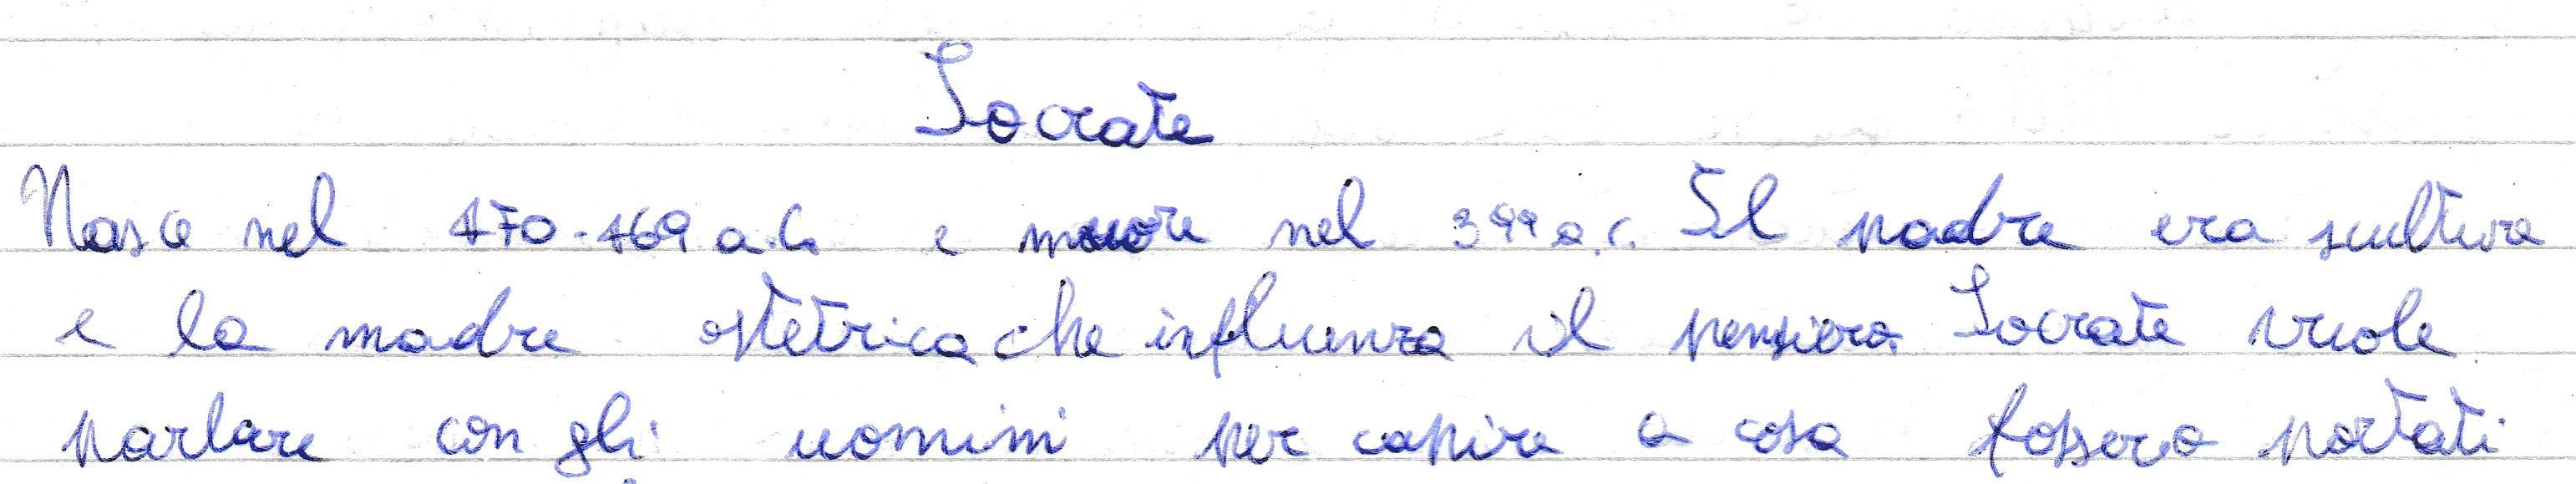 Socrate
Nasce nel 470-469 a.C. e muore nel 399 a.C. Il padre era scultore
e la madre ostetrica che influenza il pensiero. Socrate vuole
parlare con gli uomini per capire a cosa fossero portati